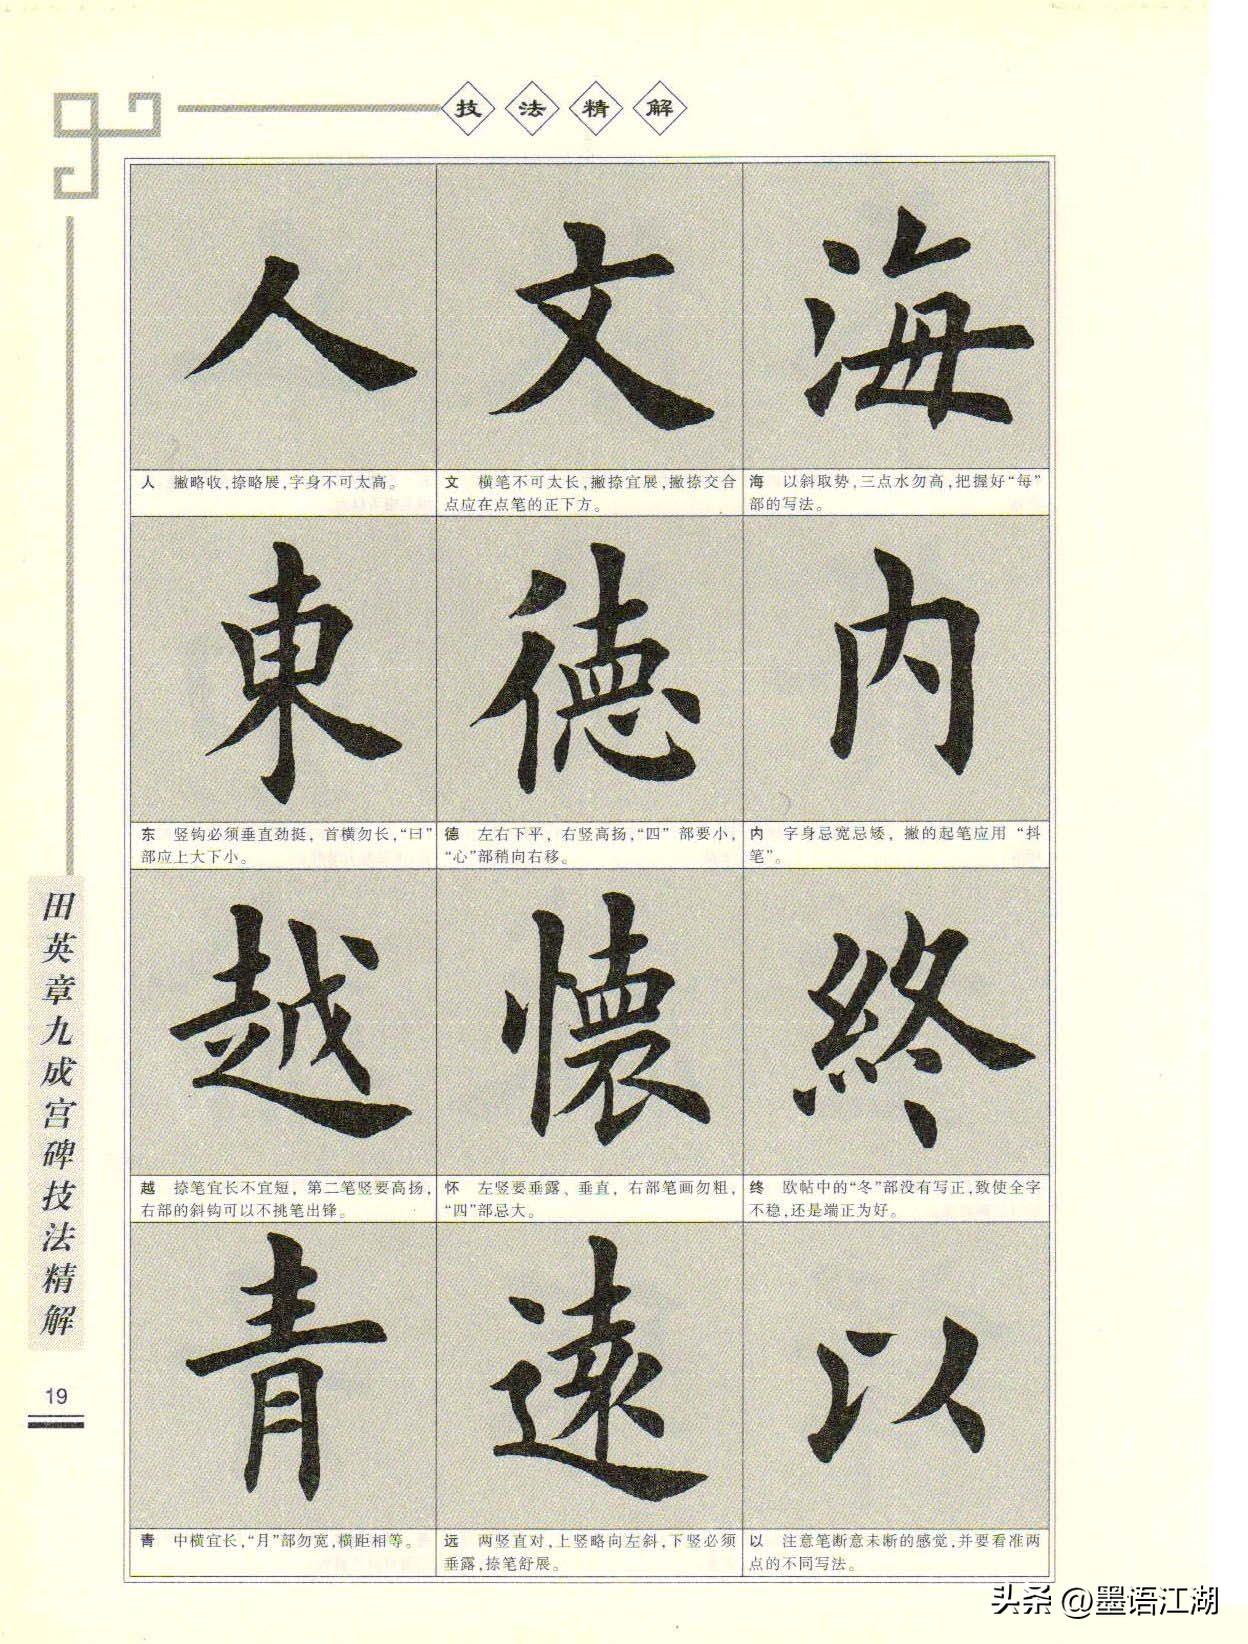 技法精解
人 文 海
人 撇略收,捺略展,字身不可太高。
文 横笔不可太长,撇捺宜展,撇捺交合
点应在点笔的正下方。
海 以斜取势,三点水勿高,把握好“每”
部的写法。
東 德 内
东 竖钩必须垂直劲挺，首横勿长,“曰”
部应上大下小。
德 左右下平，右竖高扬,“四”部要小,
“心”部稍向右移。
内 字身忌宽忌矮，撇的起笔应用“抖
笔”。
越 懷 終
越 捺笔宜长不宜短，第二笔竖要高扬,
右部的斜钩可以不挑笔出锋。
怀 左竖要垂露、垂直，右部笔画勿粗,
“四”部忌大。
终 欧帖中的“冬”部没有写正,致使全字
不稳,还是端正为好。
青 遠 以
青 中横宜长,“月”部勿宽,横距相等。
远 两竖直对，上竖略向左斜,下竖必须
垂露,捺笔舒展。
以 注意笔断意未断的感觉,并要看准两
点的不同写法。
田英章九成宫碑技法精解
19
头条 @墨语江湖